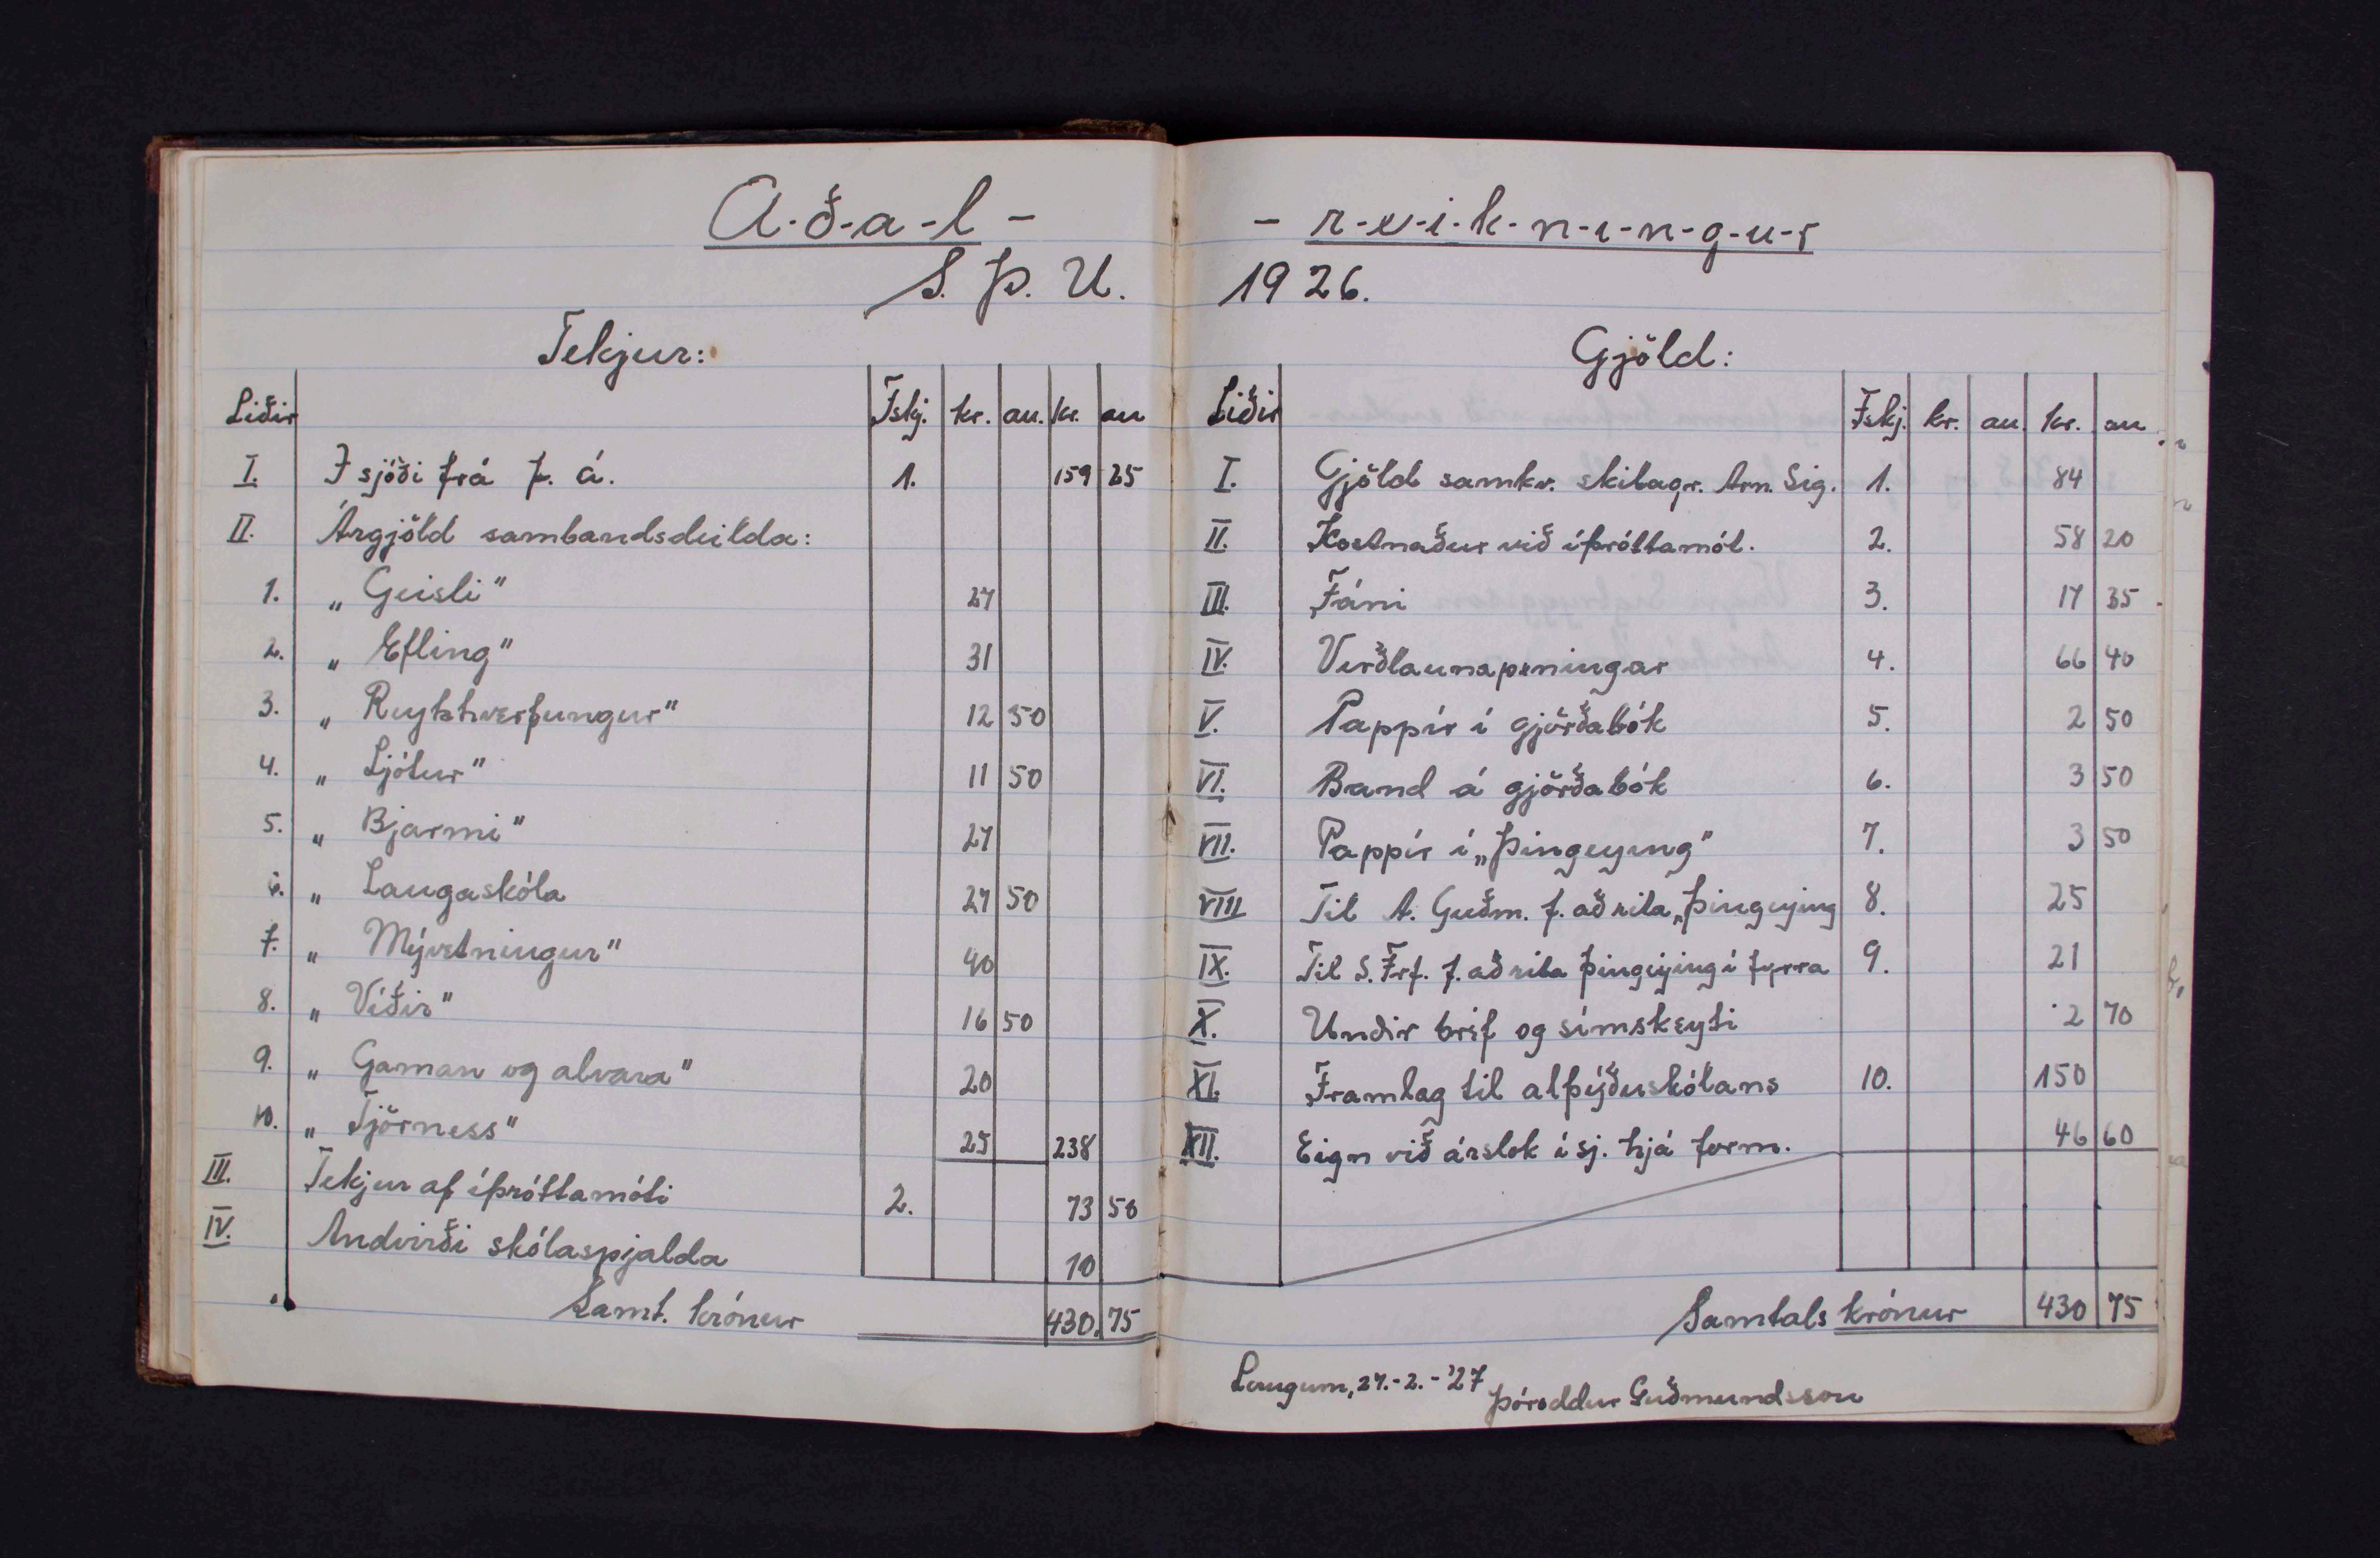 A-ð-a-l -
S. Þ. U.
Tekjur:
Liðir Fskj. kr. au. kr. au
I. Í sjóði frá f. á. 1. 159 25
II. Árgjöld sambandsdeilda:
1. „ Geisli" 27
2. „ Efling" 31
3. „ Reykhverfungur" 12 50
4. „ Ljótur" 11 50
5. „ Bjarmi" 27
6. „ Laugaskóla 27 50
7. „ Mývetningur" 40
8. „ Víðir" 16 50
9. „ Gaman og alvara" 20
10. „ Tjörness" 25 238
III. Tekjur af íþróttamóti 2. 73 50
IV. Andvirði skólaspjalda 10
Samt. krónur 430. 75
- r-e-i-k-n-i-n-g-u-r
1926.
Gjöld:
Liðir Fskj. kr. au. kr. au
I. Gjöld samkv. skilagr. Arn. Sig. 1. 84
II. Kostnaður við íþróttamót. 2. 58 20
III. Fáni 3. 17 35
IV. Verðlaunapeningar 4. 66 40
V. Pappír í gjörðabók 5. 2 50
VI. Band á gjörðabók 6. 3 50
VII. Pappír í „Þingeying" 7. 3 50
VIII Til A. Guðm. f. að rita „Þingeying 8. 25
IX. Til S. Frf. f. að rita Þingeying í fyrra 9. 21
X. Undir bréf og símskeyti 2 70
XI. Framlag til alþýðuskólans 10. 150
XII. Eign við árslok í sj. hjá form. 46 60
Samtals krónur 430 75
Laugum, 27.-2.-'27
Þóroddur Guðmundsson